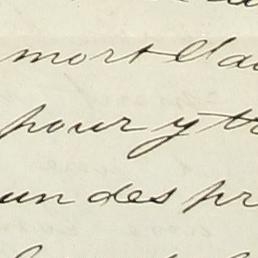 mort d'au
pour y tr
un des pr